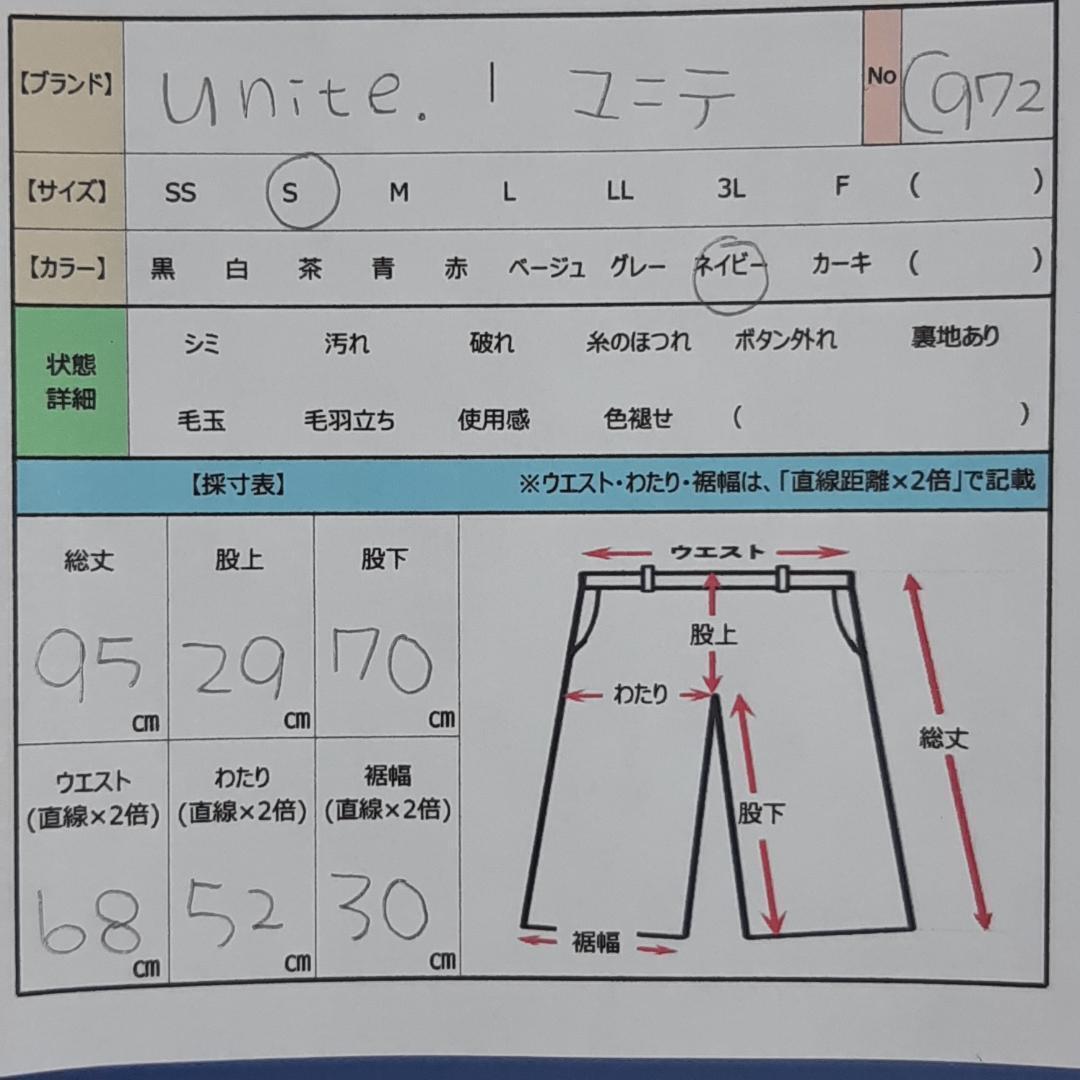 【ブランド】 unite. | ユニテ No (972
【サイズ】 SS S M L LL 3L F ( )
【カラー】 黒 白 茶 青 赤 ベージュ グレー ネイビー カーキ ( )
状態詳細 シミ 汚れ 破れ 糸のほつれ ボタン外れ 裏地あり
毛玉 毛羽立ち 使用感 色褪せ ( )
【採寸表】 ※ウエスト・わたり・裾幅は、「直線距離×2倍」で記載
総丈 股上 股下
95 cm 29 cm 70 cm
ウエスト わたり 裾幅
(直線×2倍) (直線×2倍) (直線×2倍)
68 cm 52 cm 30 cm
ウエスト
股上
わたり
総丈
股下
裾幅